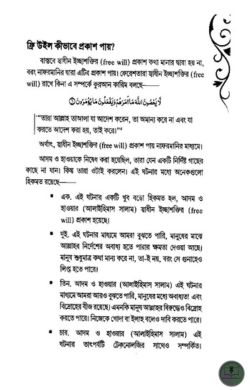 ফ্রি উইল কীভাবে প্রকাশ পায়?
বাস্তবে স্বাধীন ইচ্ছাশক্তির (free will) প্রকাশ কথা মানার দ্বারা হয় না,
বরং নাফরমানির দ্বারা এটির প্রকাশ পায়। ফেরেশতারা স্বাধীন ইচ্ছাশক্তির (free
will) রাখে কিনা এ সম্পর্কে কুরআন কারিম বলছে—
لَا يَعْصُونَ اللَّهَ مَا أَمَرَهُمْ وَيَفْعَلُونَ مَا يُؤْمَرُونَ
"তারা আল্লাহ তাআলা যা আদেশ করেন, তা অমান্য করে না এবং যা
করতে আদেশ করা হয়, তাই করে।"
অর্থাৎ, স্বাধীন ইচ্ছাশক্তির (free will) প্রকাশ পায় নাফরমানির মাধ্যমে।
আদম ও হাওয়াকে নিষেধ করা হয়েছিল, তারা যেন একটি নির্দিষ্ট গাছের
কাছে না যান। কিন্তু তারা ওটাই করলেন। এই ঘটনার মধ্যে অনেকগুলো
হিকমত রয়েছে—
▪ এক. এই ঘটনার একটি খুব বড়ো হিকমত হল, আদম ও
হাওয়ার (আলাইহিমাস সালাম) স্বাধীন ইচ্ছাশক্তির (free
will) প্রকাশ হয়েছে।
▪ দুই. এই ঘটনার মাধ্যমে আমরা বুঝতে পারি, মানুষের মাঝে
আল্লাহর নির্দেশের অবাধ্য হতে পারার ক্ষমতা দেওয়া আছে।
মানুষ শুধুমাত্র কথা মান্য করে না, তা-ই নয়, বরং সে গুনাহেও
লিপ্ত হতে পারে।
▪ তিন. আদম ও হাওয়ার (আলাইহিমাস সালাম) এই ঘটনার
মাধ্যমে আমরা আরও বুঝতে পারি, মানুষের মধ্যে অবাধ্যতা এবং
বিদ্রোহের বীজ রয়েছে। এমনকি মানুষ আল্লাহর বিরুদ্ধেও বিদ্রোহ
করতে পারে। নিজেকে খোদা বা ইলাহ বলেও দাবি করতে পারে।
▪ চার. আদম ও হাওয়ার (আলাইহিমাস সালাম) এই
ঘটনার তাৎপর্যটি টেকনোলজির সাথেও সম্পর্কিত।